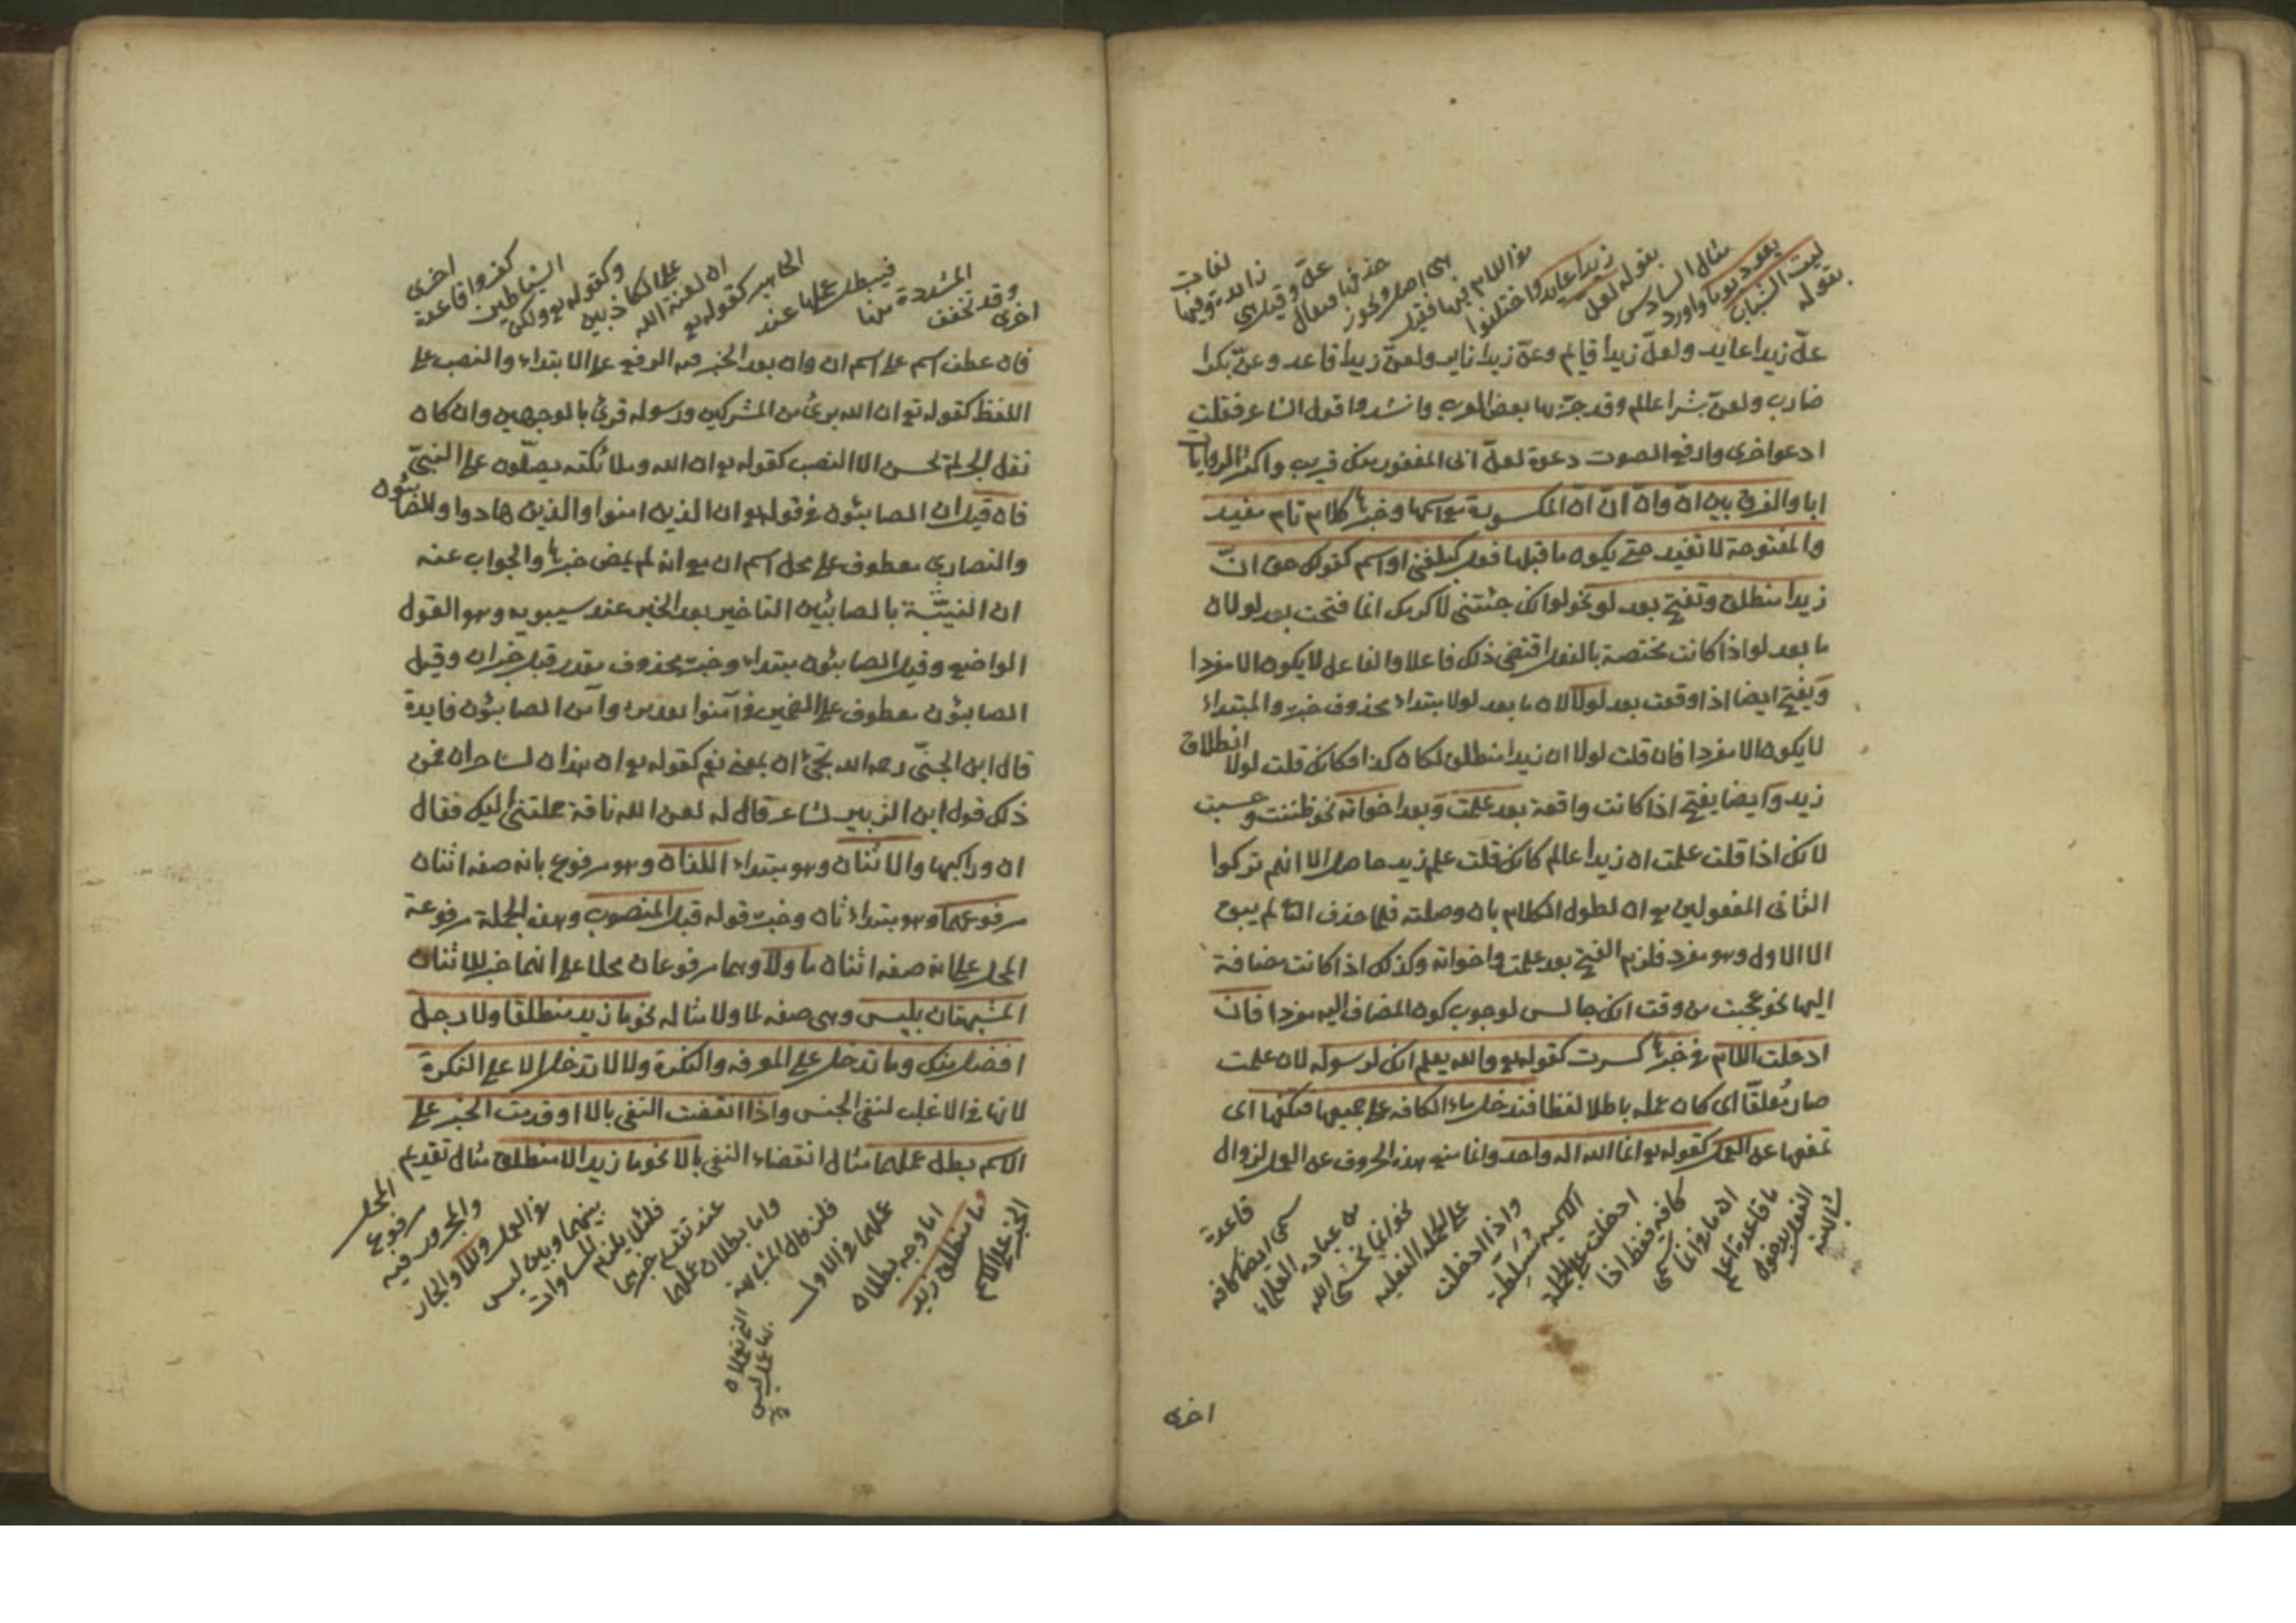 ليت الشباب
بقوله
يعود يوما واورد
مثال السادس
بقوله لعل
زيدا عايد واختلفوا
في اللام فيها فقيل
هي اصل ويجوز
حذفها فيقال
علّ وقيل هي
زايدة وفيها
لغات
علّ زيدا عايد ولعلّ زيدا قايم وعنّ زيدا ناير ولعنّ زيدا قاعد وعنّ بكرا
ضارب ولعنّ بشرا عالم وقد جرّ بها بعض العرب وانشدوا قول الشاعر فقلت
ادعوا اخرى وارفع الصوت دعوة لعلّ ابى المغوار منك قريب واكثر الروايات
ابا والفرق بين انّ وانّ انّ انّ المكسورة مع اسمها وخبرها كلام تام مفيد
والمفتوحة لا تفيد حتى يكون ما قبلها فعل كبلغني او اسم كقولك حق انّ
زيدا منطلق وتفتح بعد لو نحو لو انك جئتني لاكرمتك انما فتحت بعد لو لان
ما بعد لو اذا كانت مختصة بالفعل اقتضى ذلك فاعلا والفاعل لا يكون الا مفردا
وتفتح ايضا اذا وقعت بعد لولا لان ما بعد لولا مبتداء محذوف خبره والمبتداء
لا يكون الا مفردا فان قلت لولا ان زيدا منطلق لكان كذا فكانك قلت لولا انطلاق
زيد وايضا يفتح اذا كانت واقعة بعد علمت وبعد اخواته نحو ظننت وحسبت
لانك اذا قلت علمت ان زيدا عالم كانك قلت علم زيد حاصل الا انهم تركوا
الثاني المفعولين مع ان لطول الكلام بان وصلته فلما حذف الثاني لم يبق
الا الاول وهو مفرد فلزم الفتح بعد علمت واخواته وكذلك اذا كانت مضافة
اليها نحو عجبت من وقت انك جالس لوجوب كون المضاف اليه مفردا فان
ادخلت اللام في خبرها كسرت كقوله تع والله يعلم انك لرسوله لان علمت
صار مُعلقا اى كان عمله باطلا لفظا فتدخل ماء الكافه على جميعها فتكفها اى
تمنعها عن العمل كقوله تع انما الله اله واحد وانما منع هذه الحروف عن العمل لزوال
شابهته
الفعل بدخول
ما قاعدة اعلم
ان ما وانما سمى
كافه فقط اذا
ادخلت على الجملة
الاسميه مسلطة
واذا ادخلت
على الجمله الفعليه
نحو انما يخشى الله
من عباده العلماء
سمى ايضا كافه
قاعدة
اخرى
اخرى
وقد تخفف
المشددة منها
فيبطل عملها عند
الجماهير كقوله تع
ان لعنة الله
على الكاذبين
وكقوله تع ولكن
الشياطين
كفروا قاعدة
اخرى
فان عطف اسم على اسم ان وان بعد الخبر فيه الرفع على الابتداء والنصب على
اللفظ كقوله تع ان الله برئ من المشركين ورسوله قرئ بالوجهين وان كان
نقل الجر لم تحسن الا النصب كقوله تع ان الله وملائكته يصلّون على النبيّ
فان قيل ان الصابئون في قوله تع ان الذين امنوا والذين هادوا والصابئون
والنصارى معطوف على محل اسم ان مع انه لم يمض خبرها والجواب عنه
ان النيّة بالصابئين التاخير بعد الخبر عند سيبويه وهو القول
الواضح وقيل الصابئون مبتداء وخبره محذوف مقدر قبل خبر ان وقيل
الصابئون معطوف على الضمير في آمنوا بعد من وآمن الصابئون فايدة
قال ابن الجنّي رحمه الله تجئ ان بمعنى نعم كقوله تع ان هذان لساحران فمن
ذلك قول ابن الزبير لشاعر قال له لعن الله ناقة حملتني اليك فقال
ان وراكبها والاثنان وهو مبتداء اللفان وهو مرفوع بانه صفه اثنان
مرفوعهما وهو مبتداء ثان وخبره قوله قبل المنصوب وهذه الجملة مرفوعة
المحل على انه صفه اثنان ما ولا وهما مرفوعان محلا على انهما خبر للاثنان
المشبهتان بليس وهى صفه لما ولا مثاله نحو ما زيد منطلقا ولا رجل
افضل منك وما تدخل على المعرفه والنكرة ولا لا تدخل الا على النكرة
لانها في الاغلب لنفى الجنس واذا انتقضت النفى بالا او قدمت الخبر على
الاسم بطل عملهما مثال انتقضاء النفى بالا نحو ما زيد الا منطلق مثال تقديم
الخبر على الاسم
ما منطلق زيد
اما وجه بطلان
عملهما في الاول
فلزوال المشابهة
التي تعملان
بها عمل ليس
واما بطلان عملهما
عند تقدم خبرهما
فلئلا يلزم المساوات
بينهما وبين ليس
في العمل وللا والجار
والمجرور فيه
مرفوع
المحل